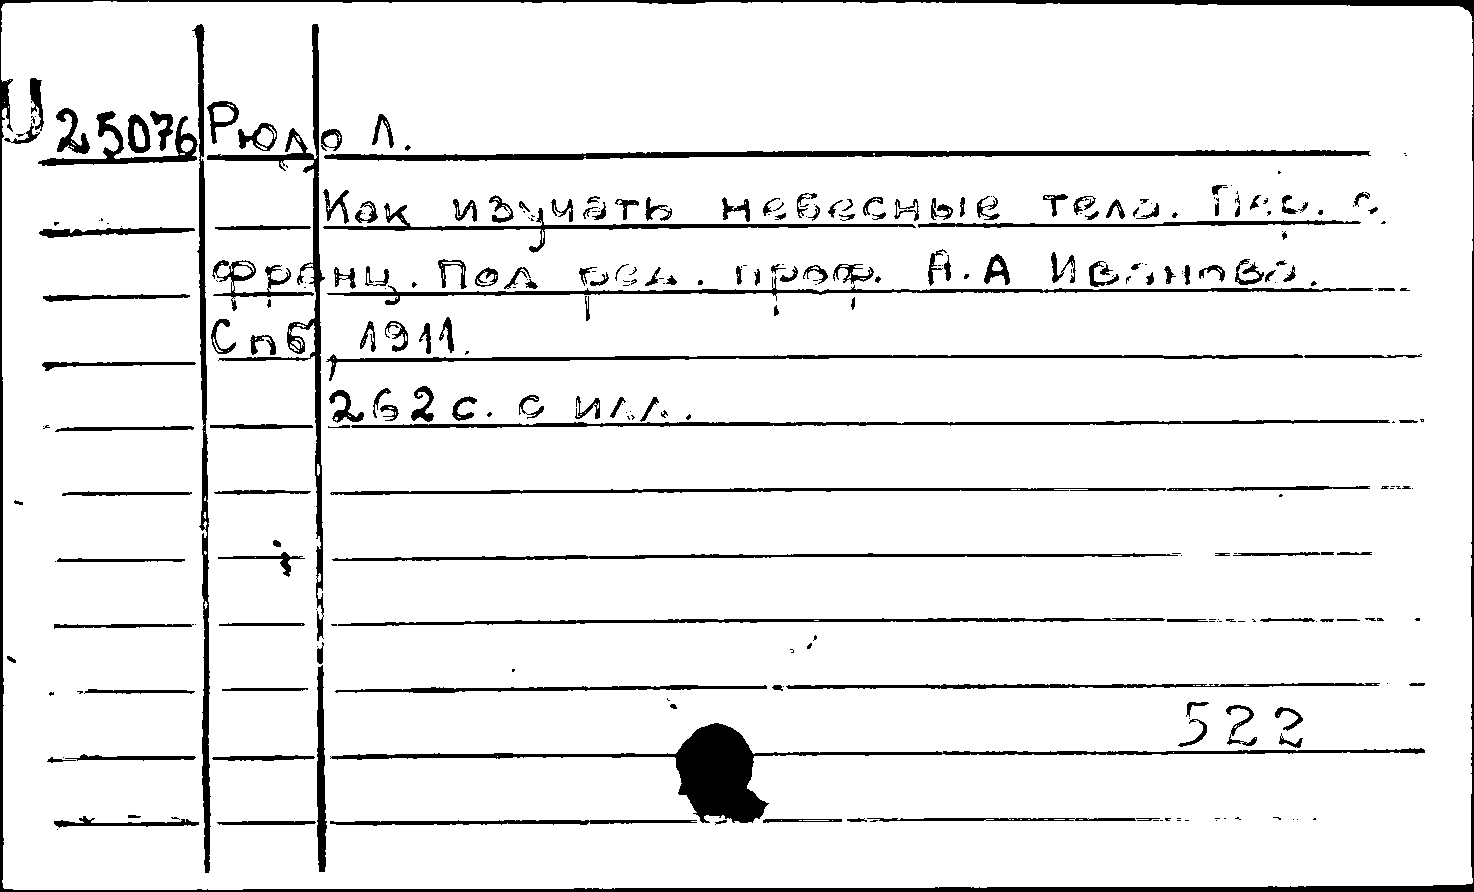 U 25076 Рюдо Л.
Как изучать небесные тела. Пер. с
франц. Под ред. проф. А.А Иванова.
Спб, 1911.
262 с. с илл.
522